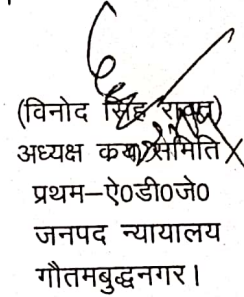 (विनोद सिंह रावत)
अध्यक्ष क्रय समिति
प्रथम–ऐ0डी0जे0
जनपद न्यायालय
गौतमबुद्धनगर।